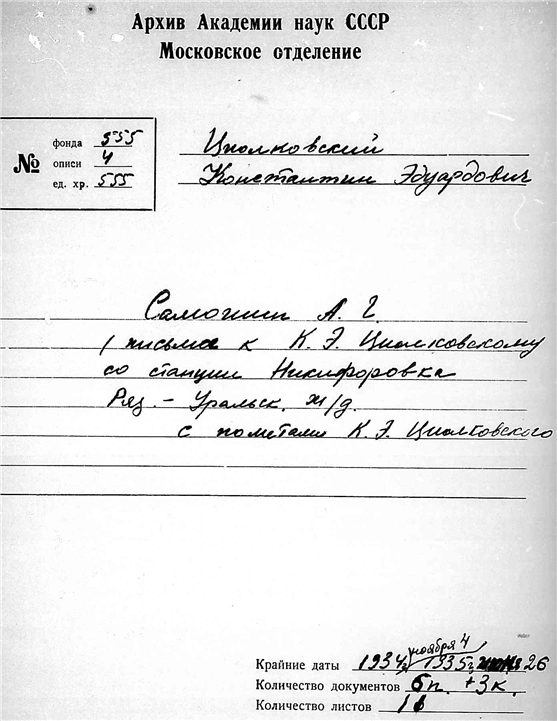 Архив Академии наук СССР
Московское отделение
№
фонда 555
описи 4
ед. хр. 555
Циолковский
Константин Эдуардович
Самохин А. Г.
письма к К. Э. Циолковскому
со станции Никифоровка
Ряз. - Уральск. ж/д.
с пометами К. Э. Циолковского
ноября 4
Крайние даты 1934г. 1935г. 26
Количество документов 6п. + 3к.
Количество листов